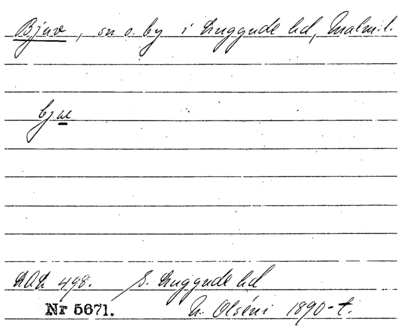 Bjuv, sn o. by i Luggude hd, Malm.l.
bjuv
LAL 498. S. Luggude hd
Nr 5671. N. Olséni 1890-t.